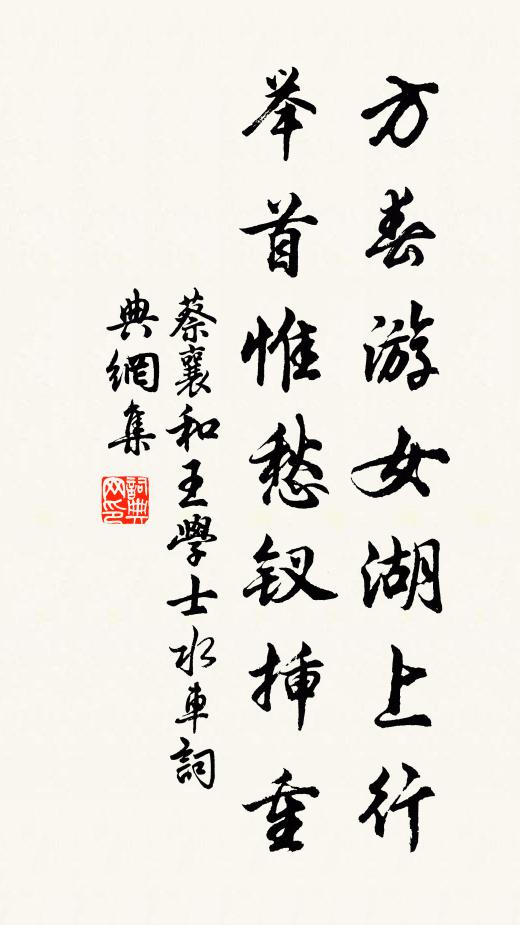 方春游女湖上行
举首惟愁钗插重
蔡襄和王學士水車詞
典網集
詞典網印